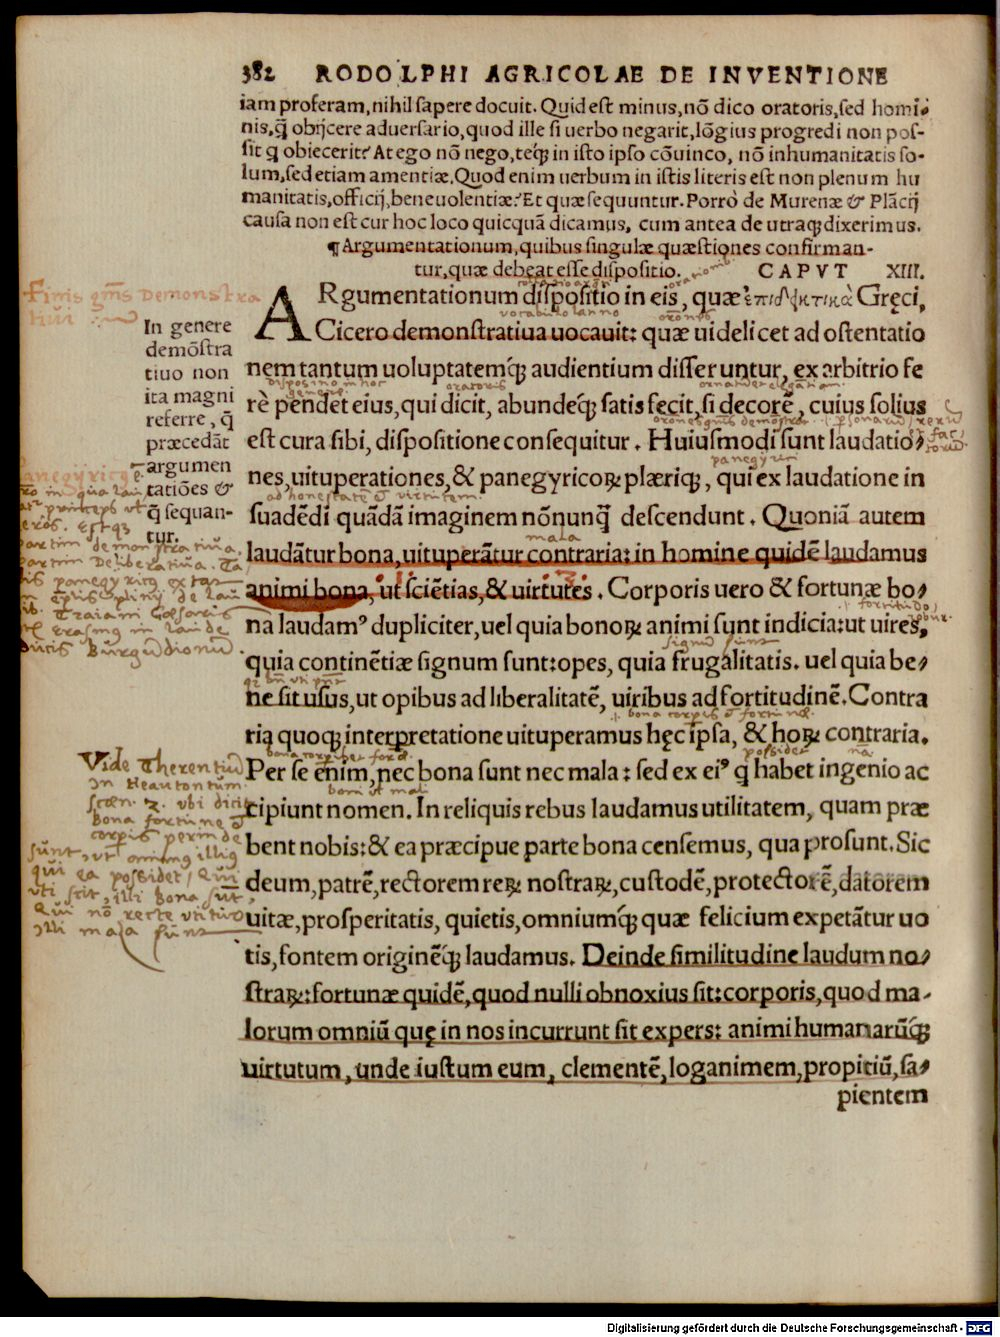 382 RODOLPHI AGRICOLAE DE INVENTIONE
iam proferam, nihil sapere docuit. Quid est minus, nō dico oratoris, sed homi-
nis, q̄ obijcere aduersario, quod ille si uerbo negarit, lōgius progredi non pos-
sit q obiecerit? At ego nō nego, teq; in isto ipso cōuinco, nō inhumanitatis so-
lum, sed etiam amentiæ. Quod enim uerbum in istis literis est non plenum hu
manitatis, officij, beneuolentiæ? Et quæ sequuntur. Porrò de Murenæ & Plācij
causa non est cur hoc loco quicquā dicamus, cum antea de utraq; dixerimus.
¶ Argumentationum, quibus singulæ quæstiones confirman-
tur, quæ debeat esse dispositio. CAPVT XIII.
ARgumentationum dispositio in eis, quæ ἐπιδεικτικὰ Gręci,
Cicero demonstratiua uocauit: quæ uidelicet ad ostentatio
nem tantum uoluptatemq́; audientium disseruntur, ex arbitrio fe
rè pendet eius, qui dicit, abundeq́; satis fecit, si decorē, cuius solius
est cura sibi, dispositione consequitur. Huiusmodi sunt laudatio-
nes, uituperationes, & panegyricoꝝ plæriq;, qui ex laudatione in
suadēdi quādā imaginem nōnunq̄ descendunt. Quoniā autem
laudātur bona, uituperātur contraria: in homine quidē laudamus
animi bona, ut sciētias, & uirtutes. Corporis uero & fortunæ bo-
na laudamꝰ dupliciter, uel quia bonoꝝ animi sunt indicia: ut uires,
quia continētiæ signum sunt: opes, quia frugalitatis. uel quia be-
ne sit usus, ut opibus ad liberalitatē, uiribus ad fortitudinē. Contra
ria quoq; interpretatione uituperamus hęc ipsa, & hoꝝ contraria.
Per se enim, nec bona sunt nec mala: sed ex eiꝰ q habet ingenio ac
cipiunt nomen. In reliquis rebus laudamus utilitatem, quam præ
bent nobis: & ea præcipue parte bona censemus, qua prosunt. Sic
deum, patrē, rectorem reꝝ nostraꝝ, custodē, protectorē, datorem
uitæ, prosperitatis, quietis, omniumq́; quæ felicium expetātur uo
tis, fontem originēq́; laudamus. Deinde similitudine laudum no-
straꝝ: fortunæ quidē, quod nulli obnoxius sit: corporis, quod ma-
lorum omniū quę in nos incurrunt sit expers: animi humanarūq́;
uirtutum, unde iustum eum, clementē, loganimem, propitiū, sa-
pientem
In genere
demōstra
tiuo non
ita magni
referre, q̄
præcedāt
argumen
tatiōes &
q̄ sequan-
tur.
Vide Therentiū
in Heautontum.
scæn. 2. vbi dicit
bona fortunæ &
corporis perinde
sunt, vt animus illius
qui ea possidet, Qui
vti scit, illi bona sūt,
Qui nō recte vtitur
illi mala sunt
Digitalisierung gefördert durch die Deutsche Forschungsgemeinschaft - DFG